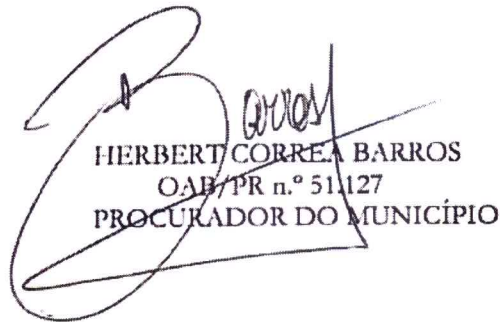 Barros
HERBERT CORREA BARROS
OAB/PR n.º 51.127
PROCURADOR DO MUNICÍPIO